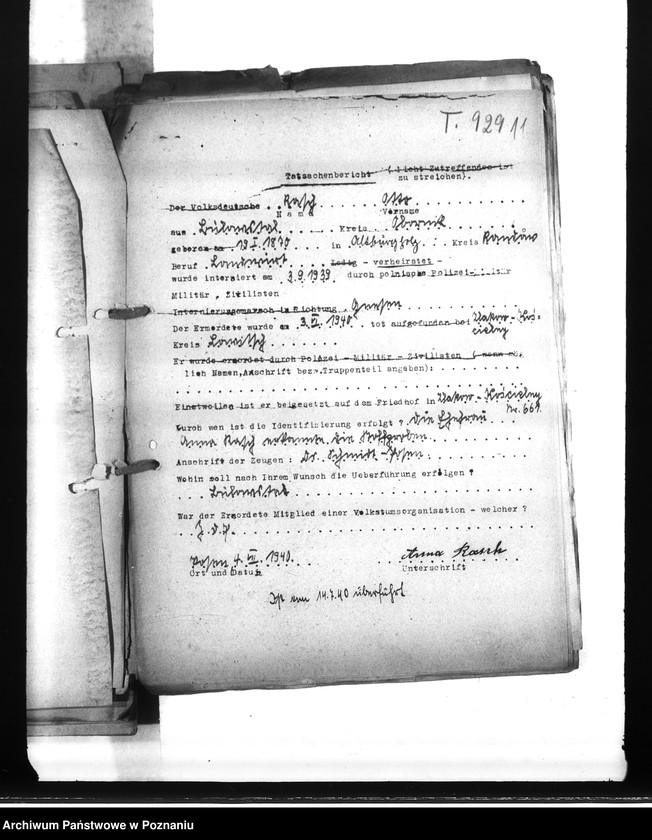 T. 929 11
Tatsachenbericht (nicht Zutreffendes ist
zu streichen).
Der Volksdeutsche . . Rasch . . . . . . Otto . . . . . . . .
Name Vorname
aus . Bülowstal . . . . . Kreis . Obornik . . . . . .
geboren am . 19.I.1870 . . . in . Altbürg . . . Kreis
Beruf . Landwirt . . . . Ledig - verheiratet -
wurde interniert am . 3.9.1939. durch polnische Polizei-
Militär , Zivilisten
Internierungsmarsch in Richtung . Gnesen . . . . . . . . .
Der Ermordete wurde am . 3.VI. 1940. . tot aufgefunden bei Utakow - Koś-
cielny
Kreis Lowitsch . . . . . . . .
Er wurde ermordet durch Polizei - Militär - Zivilisten ( wenn mö.
lich Namen,Anschrift bezw.Truppenteil angeben): . . . . . . .
Einstweilen ist er beigesetzt auf dem Friedhof in Utakow - Kościelny
Nr. 661.
Durch wen ist die Identifizierung erfolgt ? . Die Ehefrau . . .
Anna Rasch erkannte die Stoffproben. . . . . . . . .
Anschrift der Zeugen : . Dr. Schmidt - Posen . . . . . . .
Wohin soll nach Ihrem Wunsch die Ueberführung erfolgen ?
. . . Bülowstal . . . . . . . . . . . . . . . .
War der Ermordete Mitglied einer Volkstumsorganisation - welcher ?
. . J.d.P. . . . . . . . . . . . . . . . . . .
Posen 4. VII. 1940. . . Anna Rasch
Ort und Datum Unterschrift
Ist am 14.7.40 überführt
Archiwum Państwowe w Poznaniu